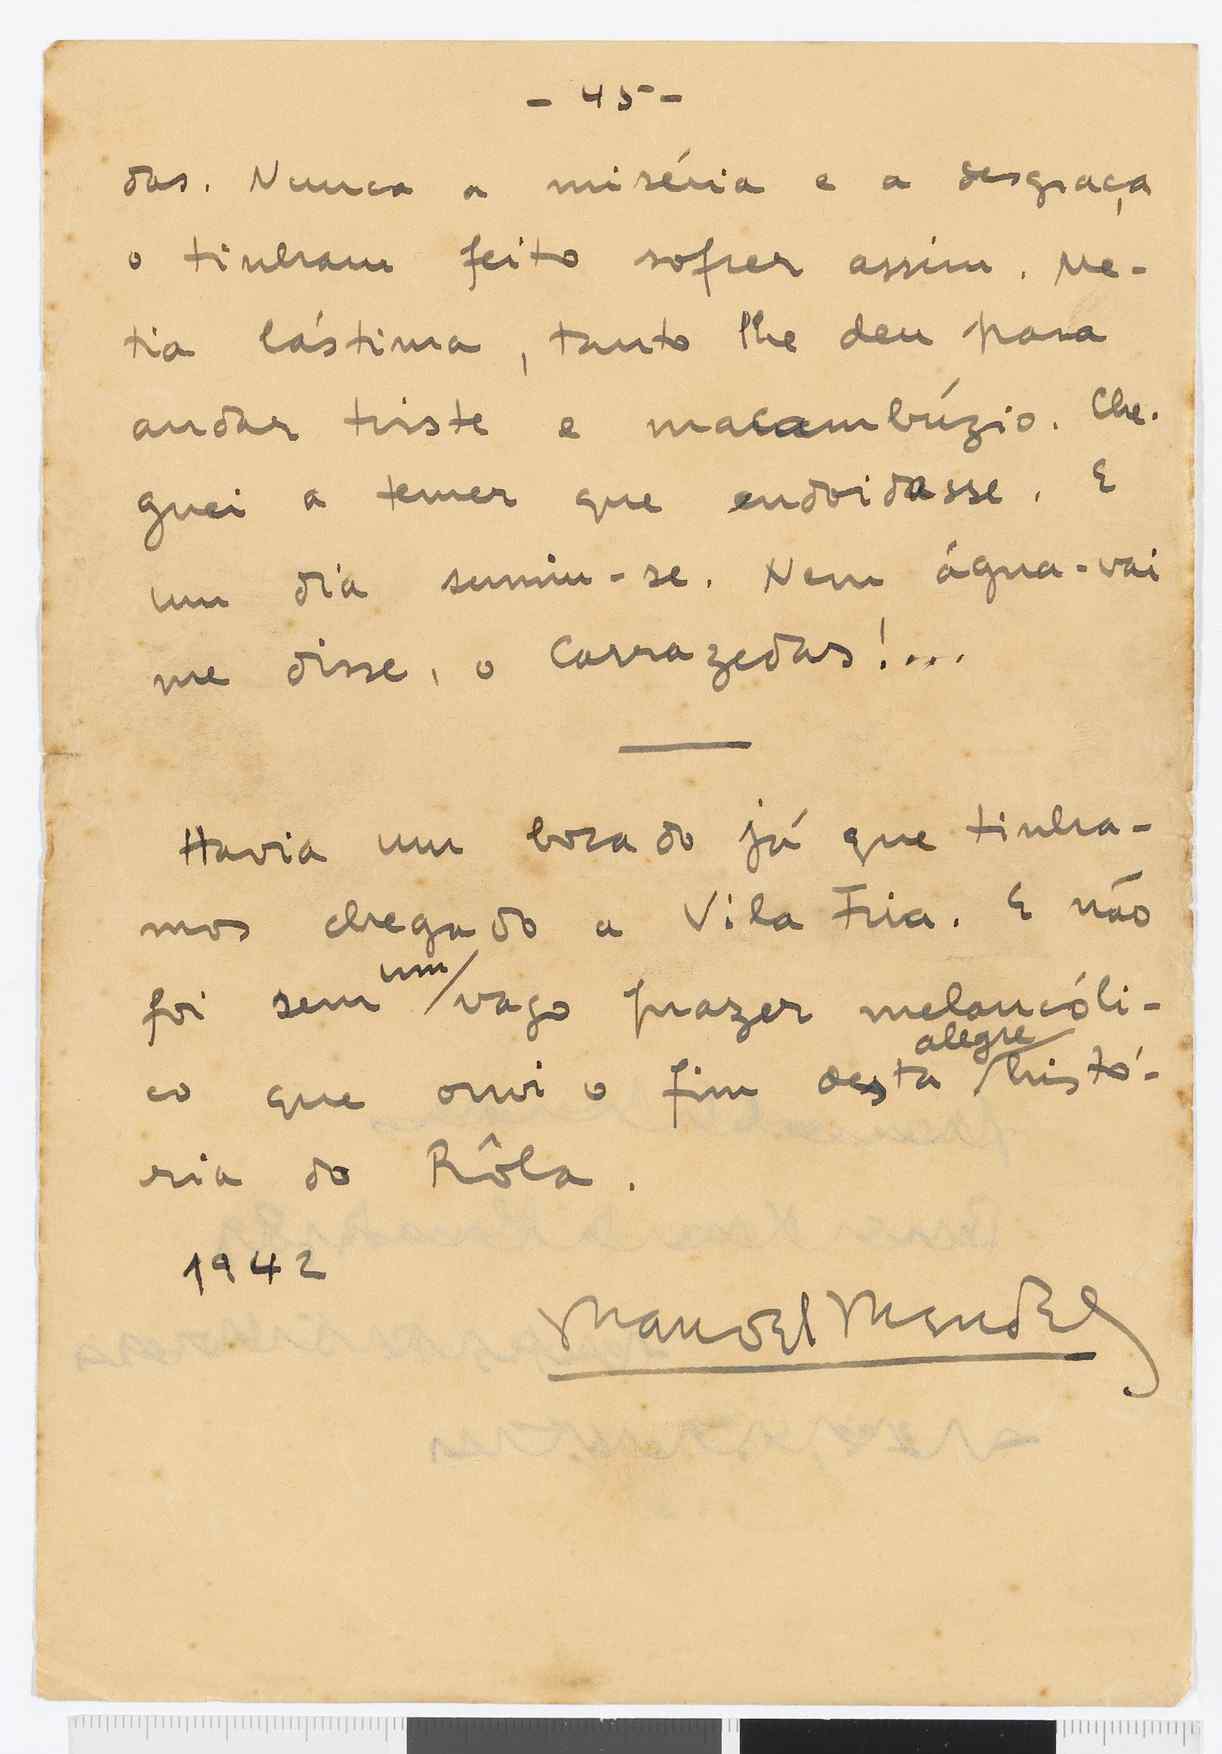 - 45 -
das. Nunca a miséria e a desgraça
o tinham feito sofrer assim. Me-
tia lástima, tanto lhe deu para
andar triste e macambúzio. Che-
guei a temer que endoidasse. E
um dia sumiu-se. Nem água-vai
me disse, o Carrazedas!...
Havia um bocado já que tinha-
mos chegado a Vila Fria. E não
foi sem um vago prazer melancóli-
co que ouvi o fim desta alegre histó-
ria do Rôla.
1942
Manuel Mendes